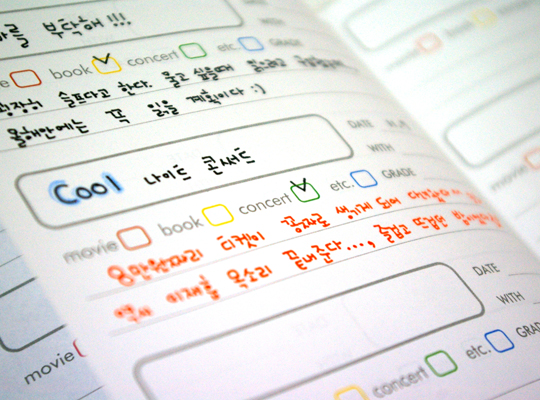 부탁해!!!
DATE
WITH
book concert etc. GRADE
슬프다고 한다. 울고 싶을때
올해안에는 꼭 읽을 계획이다 :)
Cool 나이트 콘서트
DATE
WITH
movie book concert etc. GRADE
8만원짜리 티켓이 공짜로 생기게 되어
역시 이재훈 목소리 끝내준다..., 즐겁고 뜨겁던
DATE
WITH
movie concert etc. GRADE